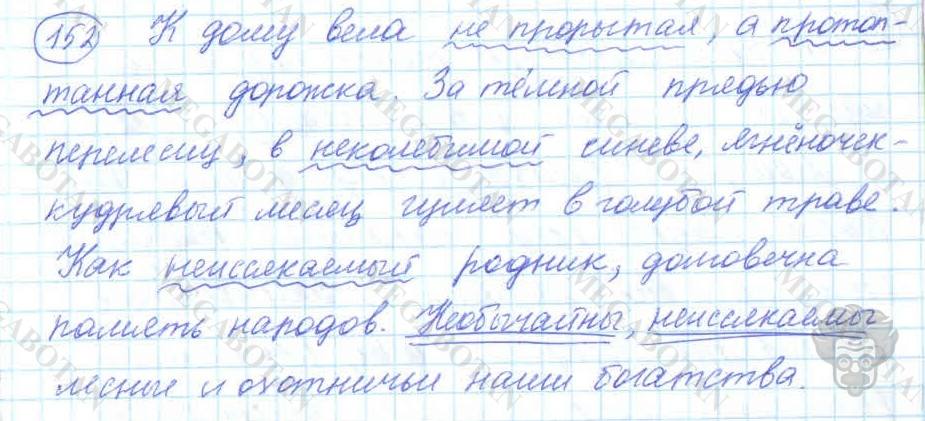 152 К дому вела не прорытая, а протоп-
танная дорожка. За тёмной прядью
перелесиц, в неколебимой синеве, ягнёночек-
кудрявый месяц гуляет в голубой траве.
Как неиссякаемый родник, долговечна
память народов. Необычайны, неиссякаемы
лесные и охотничьи наши богатства.